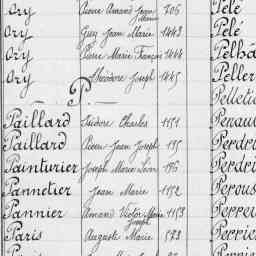 Ory Pierre Amand Jean Marie 706 Pelé
Ory Guy Jean Marie 1443 Pelé
Ory Pierre Marie François 1444
Ory Théodore Joseph 1445 Peller
P.
Paillard Isidore Charles 1151
Paillard Pierre Jean Joseph 195 Perdri
Painturier Joseph Marie Léon 196 Perdri
Pannetier Jean Marie 1152 Perous
Pannier Amand Victor Marie Joseph 1153 Perre
Paris Auguste Marie 593 Perrie